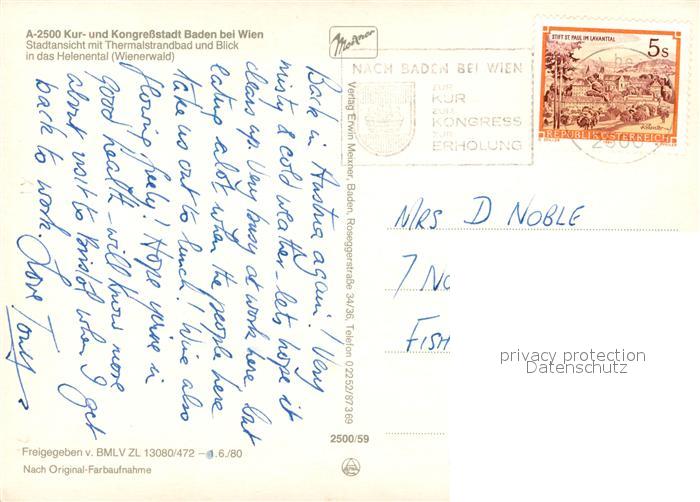 A-2500 Kur- und Kongreßstadt Baden bei Wien
Stadtansicht mit Thermalstrandbad und Blick
in das Helenental (Wienerwald)
Meixner
Back in Austria again! Very
misty & cold weather - lets hope it
clears up. Very busy at work here but
eating alot when the people here
take us out to lunch! Wine also
flowing freely! Hope you're in
Good health - will know more
about visit to Bristol when I get
back to work. Love Tony
Verlag Erwin Meixner, Baden, Roseggerstraße 34/36, Telefon 02252/87369
2500/59
Freigegeben v. BMLV ZL 13080/472 – 1.6./80
Nach Original-Farbaufnahme
NACH BADEN BEI WIEN
ZUR
KUR
ZUM
KONGRESS
ZUR
ERHOLUNG
STIFT ST. PAUL IM LAVANTTAL
5s
REPUBLIK ÖSTERREICH
2500
MRS D NOBLE
7 No
FISH
privacy protection
Datenschutz